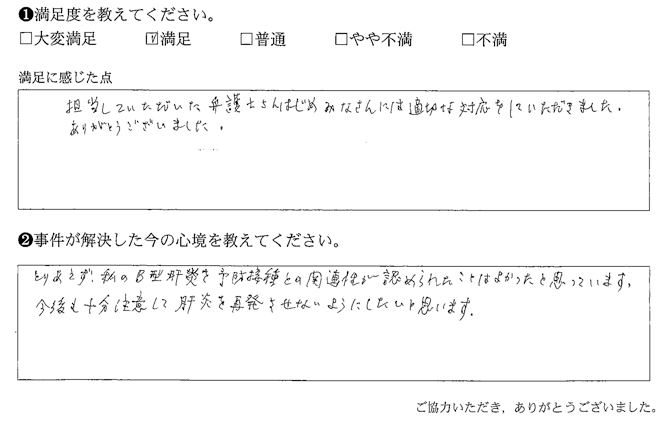 ❶満足度を教えてください。
□大変満足 ☑満足 □普通 □やや不満 □不満
満足に感じた点
担当していただいた弁護士さんはじめみなさんには適切な対応をしていただきました。
ありがとうございました。
❷事件が解決した今の心境を教えてください。
とりあえず、私のB型肝炎と予防接種との関連性が認められたことはよかったと思っています。
今後も十分注意して肝炎を再発させないようにしたいと思います。
ご協力いただき、ありがとうございました。